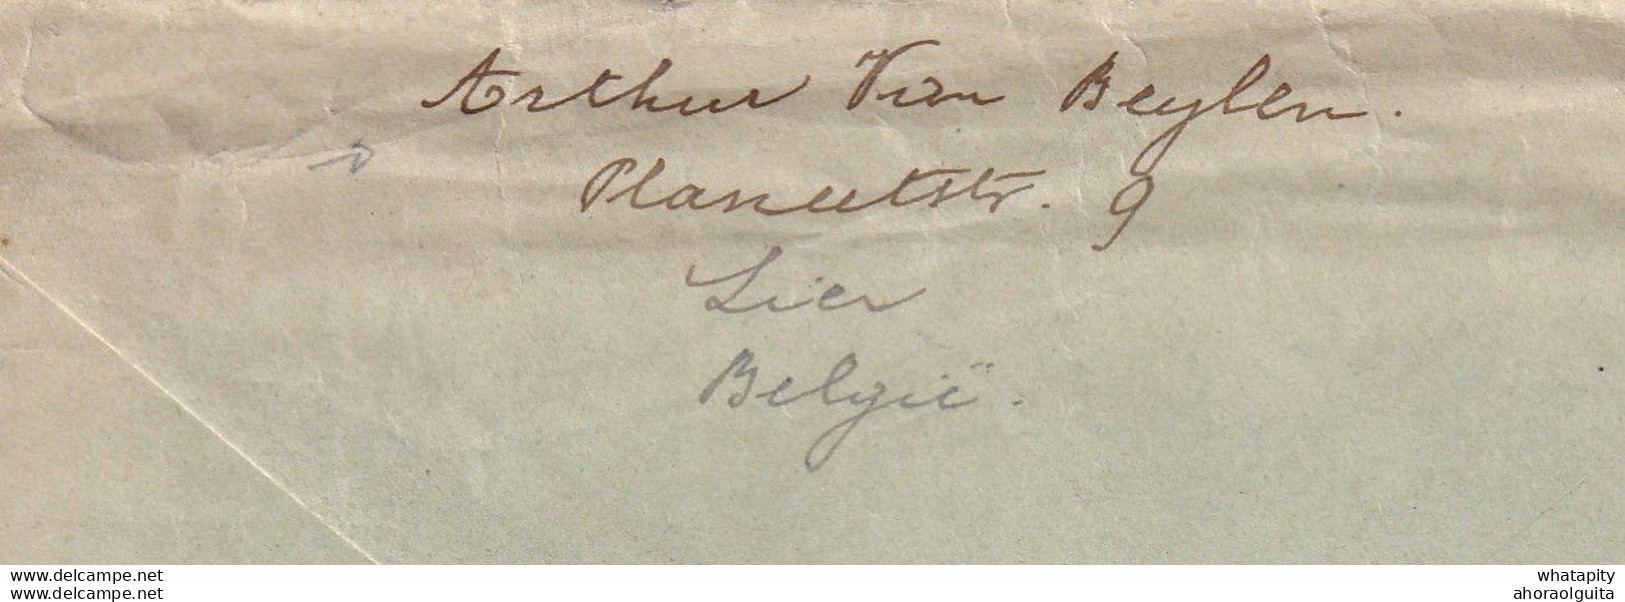 Arthur Van Beylen.
Planeetstr. 9
Lier
België.
www.delcampe.net
whatapity
www.delcampe.net
ahoraolguita